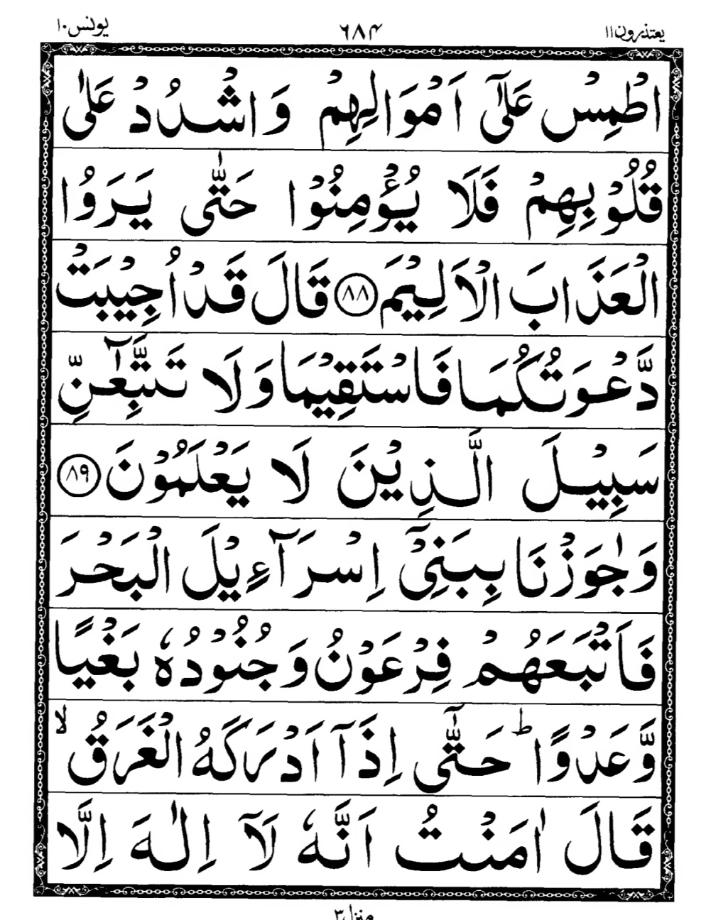 يونس١٠ ٦٨٤ يعتذرون١١
اطْمِسْ عَلٰۤى اَمْوَالِهِمْ وَاشْدُدْ عَلٰى
قُلُوْبِهِمْ فَلَا يُؤْمِنُوْا حَتّٰى يَرَوُا
الْعَذَابَ الْاَلِيْمَ ﴿٨٨﴾ قَالَ قَدْ اُجِيْبَتْ
دَّعْوَتُكُمَا فَاسْتَقِيْمَا وَلَا تَتَّبِعٰٓنِّ
سَبِيْلَ الَّذِيْنَ لَا يَعْلَمُوْنَ ﴿٨٩﴾
وَجٰوَزْنَا بِبَنِيْۤ اِسْرَآءِيْلَ الْبَحْرَ
فَاَتْبَعَهُمْ فِرْعَوْنُ وَجُنُوْدُهٗ بَغْيًا
وَّعَدْوًا ؕ حَتّٰۤى اِذَاۤ اَدْرَكَهُ الْغَرَقُ ۙ
قَالَ اٰمَنْتُ اَنَّهٗ لَاۤ اِلٰهَ اِلَّا
منزل٣